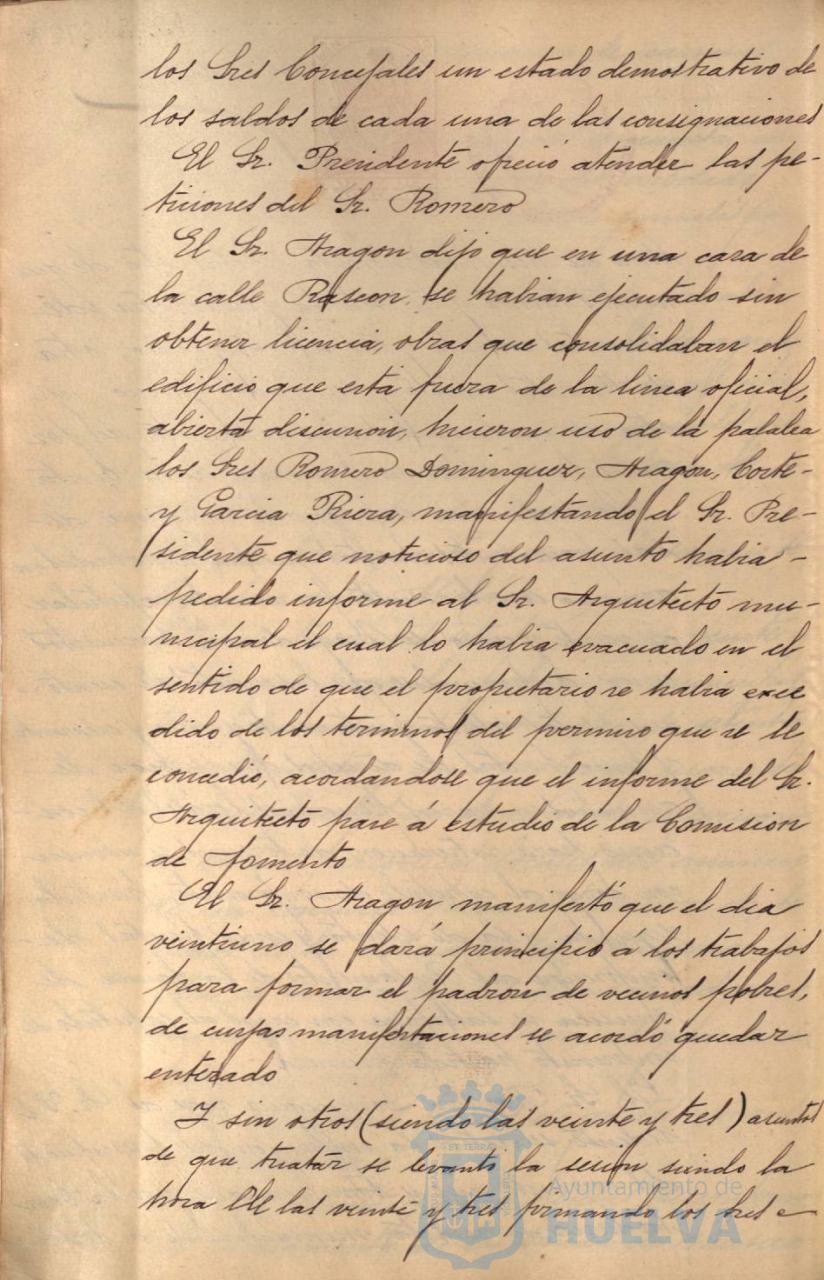 los Sres Concejales un estado demostrativo de
los saldos de cada una de las consignaciones
El Sr. Presidente ofreció atender las pe-
ticiones del Sr. Romero
El Sr. Aragon dijo que en una casa de
la calle Rascon, se habian ejecutado sin
obtener licencia, obras que consolidaban el
edificio que está fuera de la linea oficial,
abierta discusion, hicieron uso de la palabra
los Sres Romero Dominguez, Aragon, Corte-
y Garcia Riera, manifestando el Sr. Pre-
sidente que noticioso del asunto habia-
pedido informe al Sr. Arquitecto mu-
nicipal el cual lo habia evacuado en el
sentido de que el propietario se habia exce
dido de los terminos del permiso que se le
concedió, acordandose que el informe del Sr.
Arquitecto pase á estudio de la Comision
de fomento
El Sr. Aragon manifestó que el dia
veintiuno se dará principio á los trabajos
para formar el padron de vecinos pobres,
de cuyas manifestaciones se acordó quedar
enterado
Y sin otros (siendo las veinte y tres) asuntos
de que tratar se levantó la sesion siendo la
hora de las veinte y tres firmando los Sres
Ayuntamiento de
HUELVA